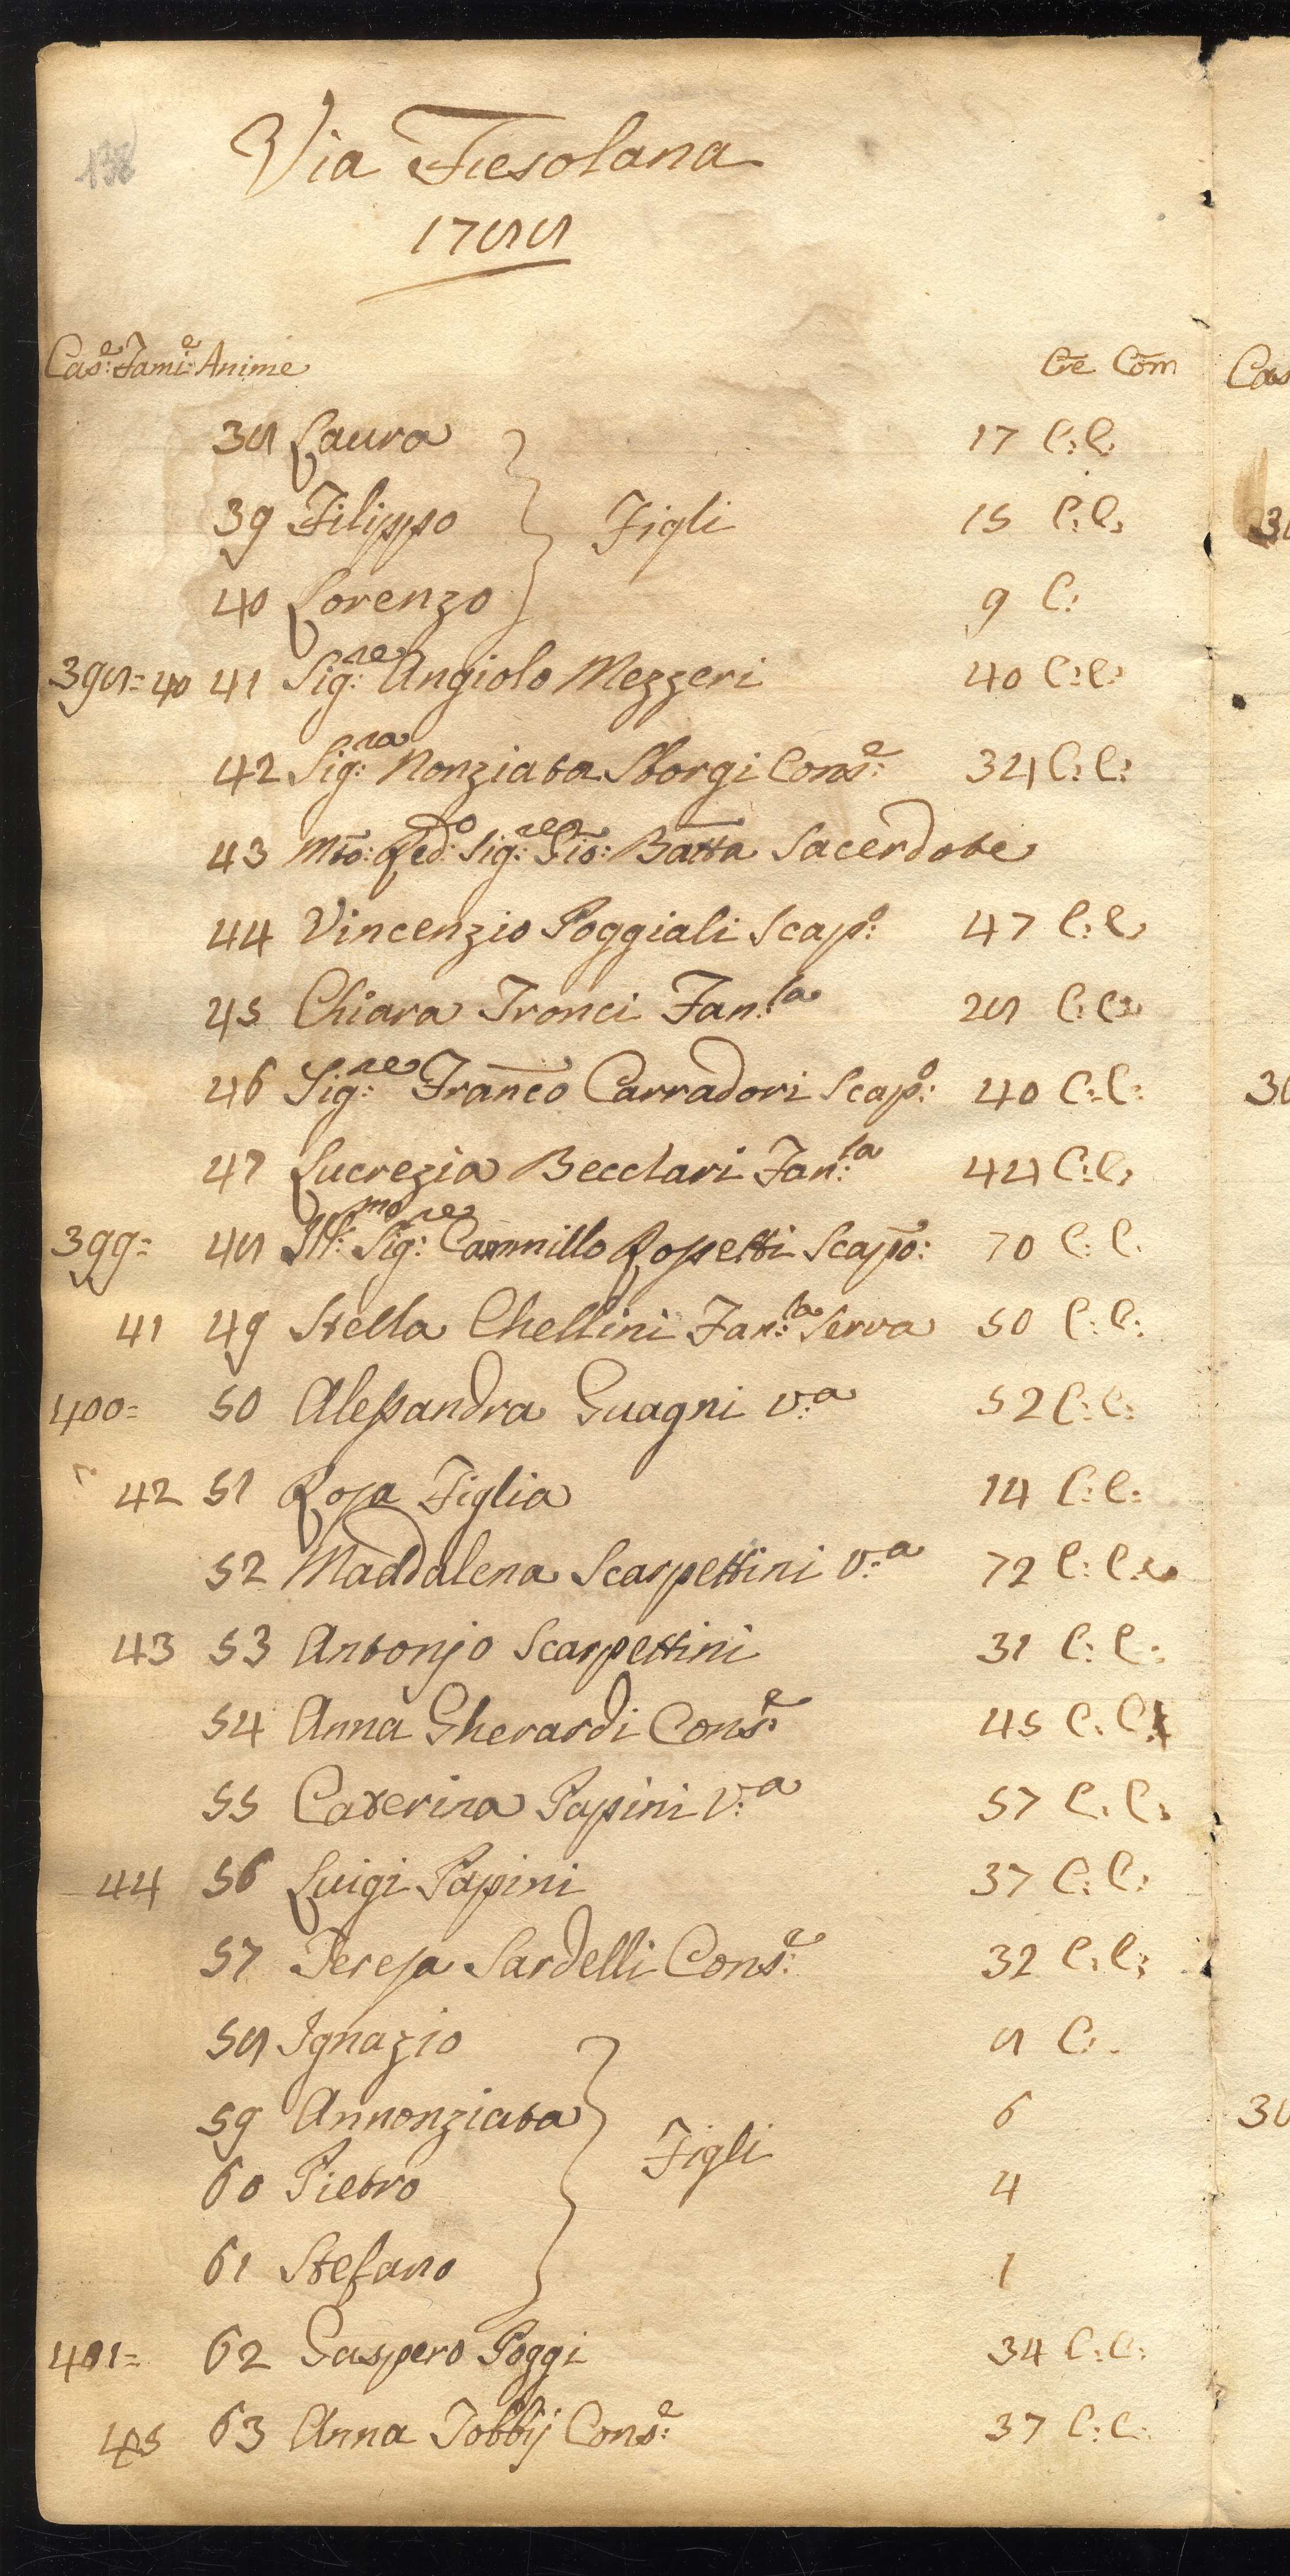 138
Via Fiesolana
1788
Cas:e Fami:e Anime Cre Com
38 Laura 17 C: C:
39 Filippo Figli 15 C: C:
40 Lorenzo 9 C:
398= 40 41 Sig:re Angiolo Mezzeri 40 C: C:
42 Sig:ra Nonziata Sborgi Cons:e 34 C: C:
43 Mto: Red:o Sig:re Gio: Batta Sacerdote
44 Vincenzio Poggiali Scap:o 47 C: C:
45 Chiara Tronci Fan:la 28 C: C:
46 Sig:re Franco Carradori Scap:o 40 C: C:
47 Lucrezia Becclari Fan:la 44 C: C:
399= 48 Ill:mo Sig:re Cammillo Rossetti Scapo: 70 C: C:
41 49 Stella Chellini Fan:la Serva 50 C: C:
400= 50 Alessandra Guagni v:a 52 C: C:
42 51 Rosa Figlia 14 C: C:
52 Maddalena Scarpettini v:a 72 C: C:
43 53 Antonjo Scarpettini 31 C: C:
54 Anna Gherardi Cons:e 45 C: C:
55 Caterina Papini V:a 57 C: C:
44 56 Luigi Papini 37 C: C:
57 Teresa Sardelli Cons:e 32 C: C:
58 Ignazio 8 C:
59 Annonziata 6
Figli
60 Pietro 4
61 Stefano 1
401= 62 Gaspero Poggi 34 C: C:
45 63 Anna Tobbij Cons:e 37 C: C: